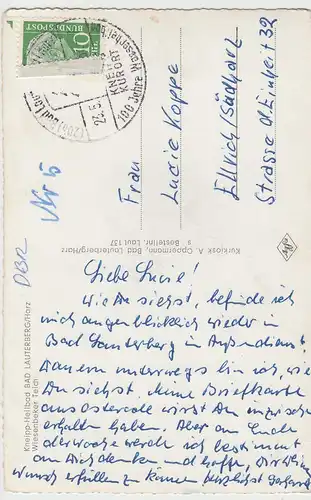 10
BUNDESPOST
(20b) Bad Laut
KNEIPP
KURORT
100 Jahre Wasserheil
24. 5.
Nr 5
DBR
Frau
Lucie Koppe
Ellrich (Südharz)
Strasse d. Einheit 32
Kurkiosk A. Oppermann, Bad Lauterberg/Harz
Bestellnr. Laut 137
Kneipp-Heilbad BAD LAUTERBERG/Harz
Wiesenbeker Teich
Liebe Lucie!
Wie Du siehst, befinde ich
mich augenblicklich wieder in
Bad Lauterberg in Außendienst.
Dauernd unterwegs bin ich, wie
Du siehst. Meine Briefkarte
aus Osterode wirst Du inzwischen
erhalten haben. Aber am Ende
der Woche werde ich bestimmt
an Dich denken und hoffe, Dir
Wunsch erfüllen zu können. Herzlichst Gerhard